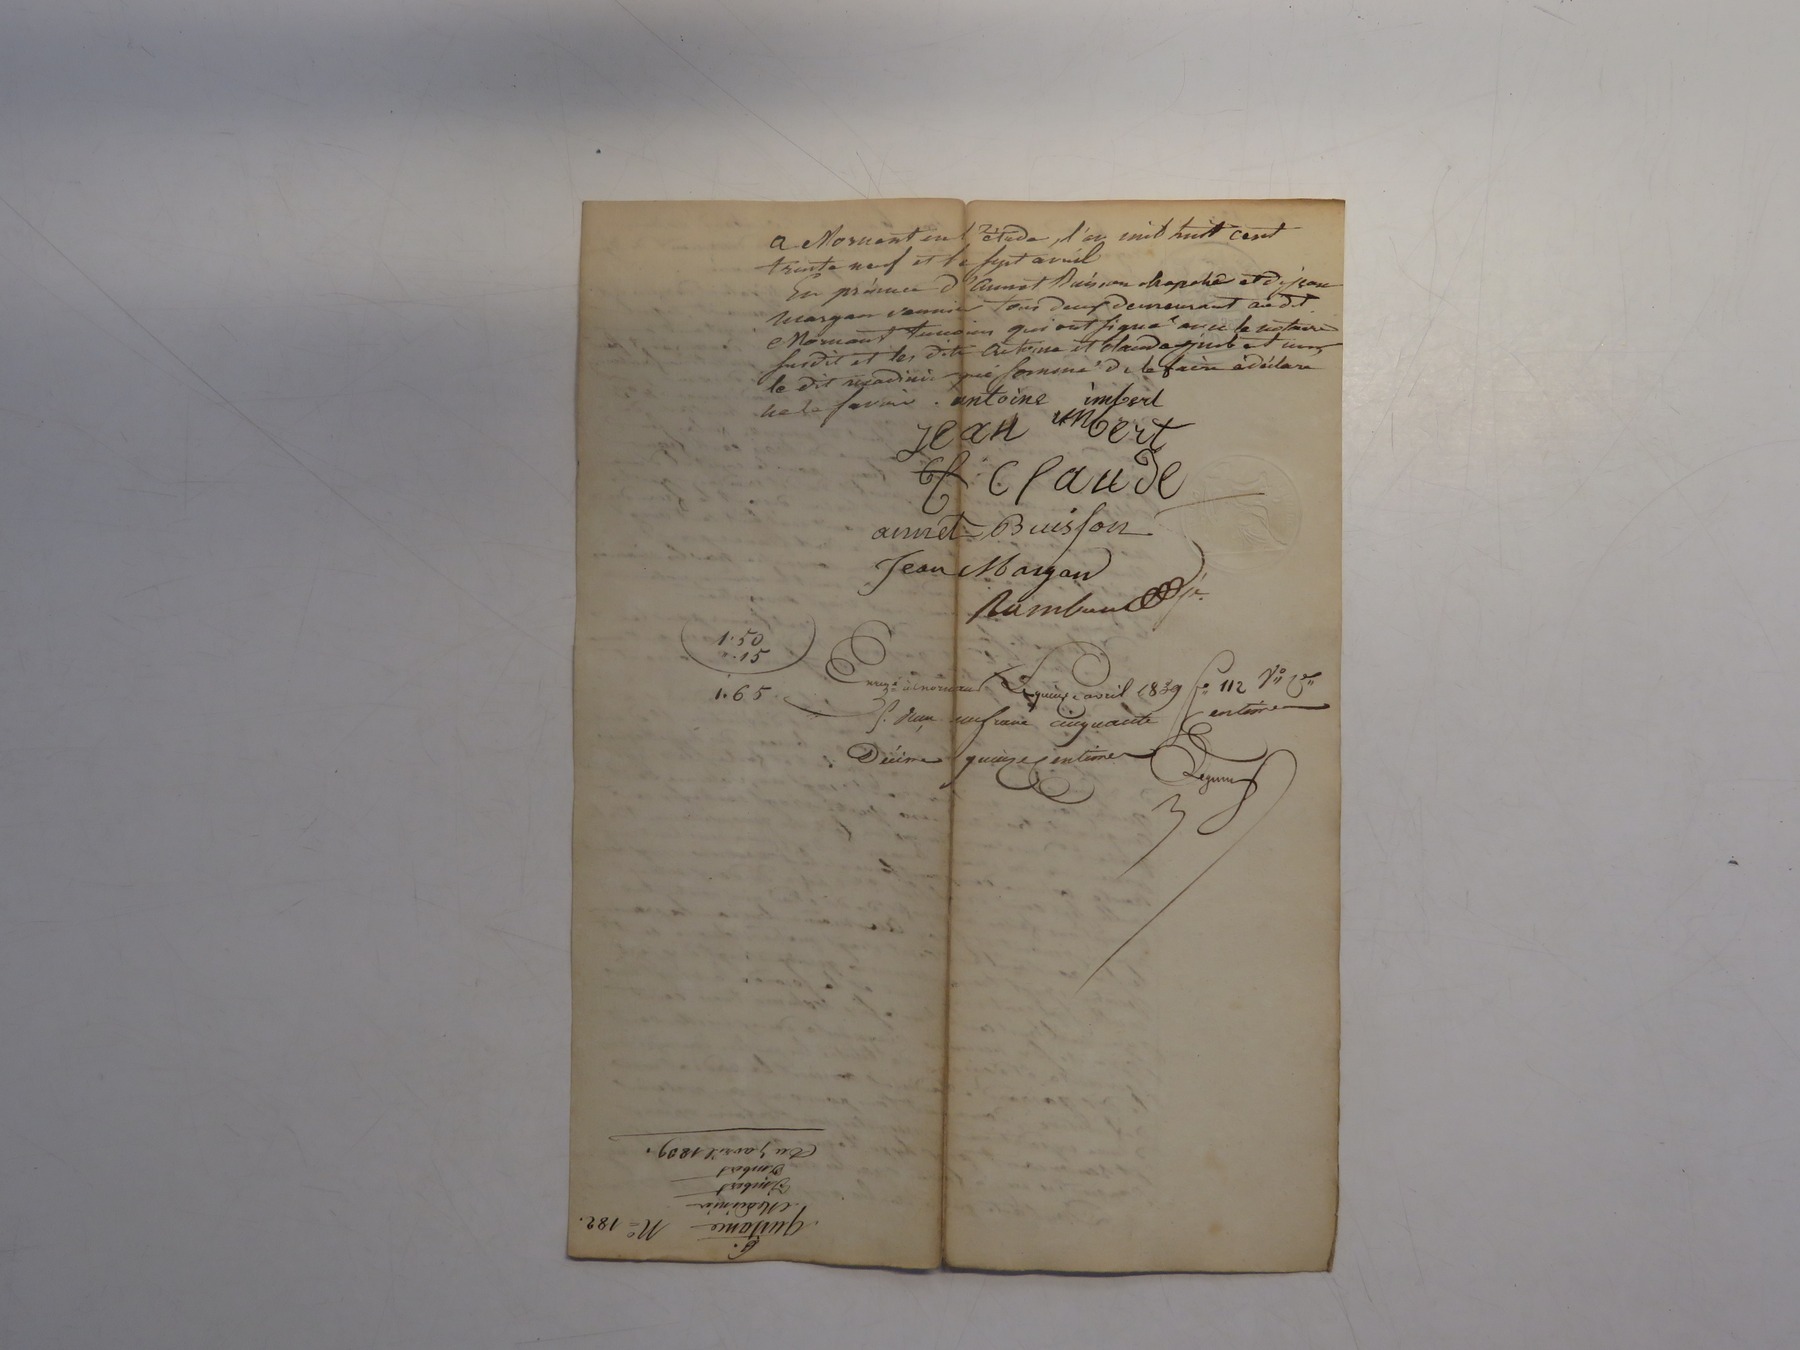 a Mornant en l'étude, l'an mil huit cent
trente neuf et le sept avril
En présence d'annet Buisson et de jean
margan tous deux demeurant audit
Mornant témoins qui ont signé avec le notaire
susdit et les dits antoine et claude imbert non
le dit mécdinier qui sommé de le faire a déclaré
ne le savoir. antoine imbert
jean imbert
C Claude
annet Buisson
Jean Margan
Rambaud
1.50
.15
1.65
Enreg.é à mornant Le quinze avril 1839 f.o 112 V.o
R. un franc cinquante centimes
Décime quinze Centimes
N.o 182.
quittance
Imbert
Imbert
Du 7 avril 1839.